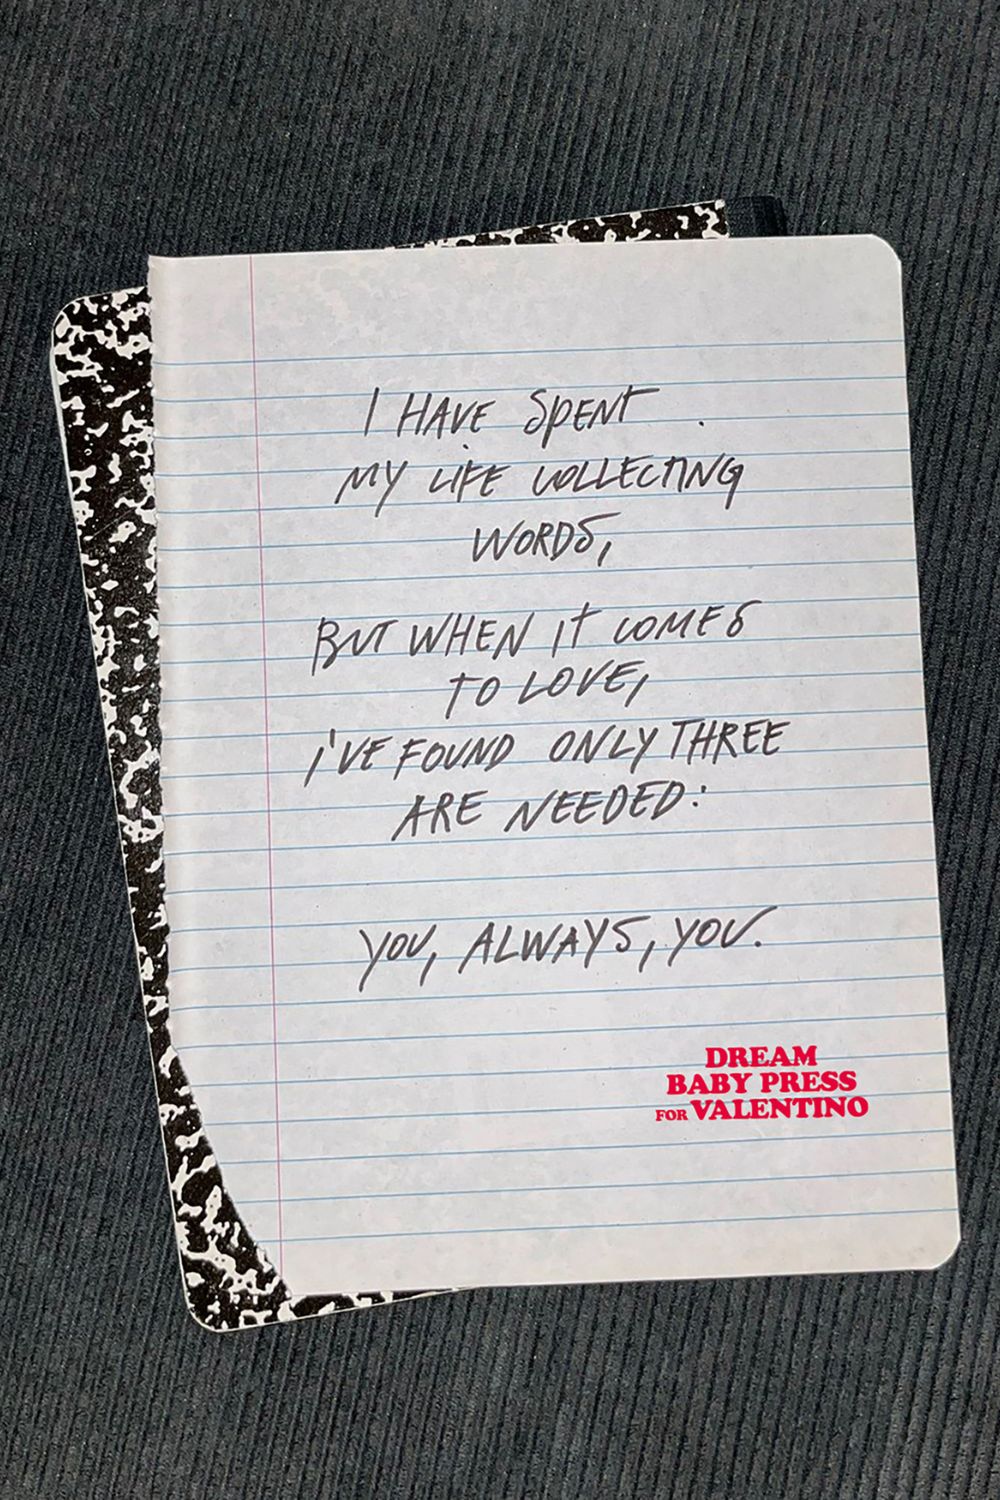 I HAVE SPENT
MY LIFE COLLECTING
WORDS,
BUT WHEN IT COMES
TO LOVE,
I'VE FOUND ONLY THREE
ARE NEEDED:
YOU, ALWAYS, YOU.
DREAM
BABY PRESS
FOR VALENTINO